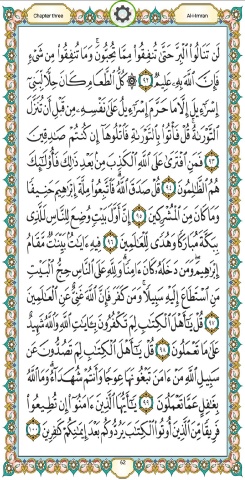 Chapter three
Al-Imran
لَن تَنَالُوا۟ ٱلْبِرَّ حَتَّىٰ تُنفِقُوا۟ مِمَّا تُحِبُّونَ ۚ وَمَا تُنفِقُوا۟ مِن شَىْءٍ
فَإِنَّ ٱللَّهَ بِهِۦ عَلِيمٌ ٩٢ ۞ كُلُّ ٱلطَّعَامِ كَانَ حِلًّا لِّبَنِىٓ
إِسْرَٰٓءِيلَ إِلَّا مَا حَرَّمَ إِسْرَٰٓءِيلُ عَلَىٰ نَفْسِهِۦ مِن قَبْلِ أَن تُنَزَّلَ
ٱلتَّوْرَىٰةُ ۗ قُلْ فَأْتُوا۟ بِٱلتَّوْرَىٰةِ فَٱتْلُوهَآ إِن كُنتُمْ صَٰدِقِينَ
٩٣ فَمَنِ ٱفْتَرَىٰ عَلَى ٱللَّهِ ٱلْكَذِبَ مِنۢ بَعْدِ ذَٰلِكَ فَأُو۟لَٰٓئِكَ
هُمُ ٱلظَّٰلِمُونَ ٩٤ قُلْ صَدَقَ ٱللَّهُ ۗ فَٱتَّبِعُوا۟ مِلَّةَ إِبْرَٰهِيمَ حَنِيفًا
وَمَا كَانَ مِنَ ٱلْمُشْرِكِينَ ٩٥ إِنَّ أَوَّلَ بَيْتٍ وُضِعَ لِلنَّاسِ لَلَّذِى
بِبَكَّةَ مُبَارَكًا وَهُدًى لِّلْعَٰلَمِينَ ٩٦ فِيهِ ءَايَٰتٌۢ بَيِّنَٰتٌ مَّقَامُ
إِبْرَٰهِيمَ ۖ وَمَن دَخَلَهُۥ كَانَ ءَامِنًا ۗ وَلِلَّهِ عَلَى ٱلنَّاسِ حِجُّ ٱلْبَيْتِ
مَنِ ٱسْتَطَاعَ إِلَيْهِ سَبِيلًا ۚ وَمَن كَفَرَ فَإِنَّ ٱللَّهَ غَنِىٌّ عَنِ ٱلْعَٰلَمِينَ
٩٧ قُلْ يَٰٓأَهْلَ ٱلْكِتَٰبِ لِمَ تَكْفُرُونَ بِـَٔايَٰتِ ٱللَّهِ وَٱللَّهُ شَهِيدٌ
عَلَىٰ مَا تَعْمَلُونَ ٩٨ قُلْ يَٰٓأَهْلَ ٱلْكِتَٰبِ لِمَ تَصُدُّونَ عَن
سَبِيلِ ٱللَّهِ مَنْ ءَامَنَ تَبْغُونَهَا عِوَجًا وَأَنتُمْ شُهَدَآءُ ۗ وَمَا ٱللَّهُ
بِغَٰفِلٍ عَمَّا تَعْمَلُونَ ٩٩ يَٰٓأَيُّهَا ٱلَّذِينَ ءَامَنُوٓا۟ إِن تُطِيعُوا۟
فَرِيقًا مِّنَ ٱلَّذِينَ أُوتُوا۟ ٱلْكِتَٰبَ يَرُدُّوكُم بَعْدَ إِيمَٰنِكُمْ كَٰفِرِينَ ١٠٠
62